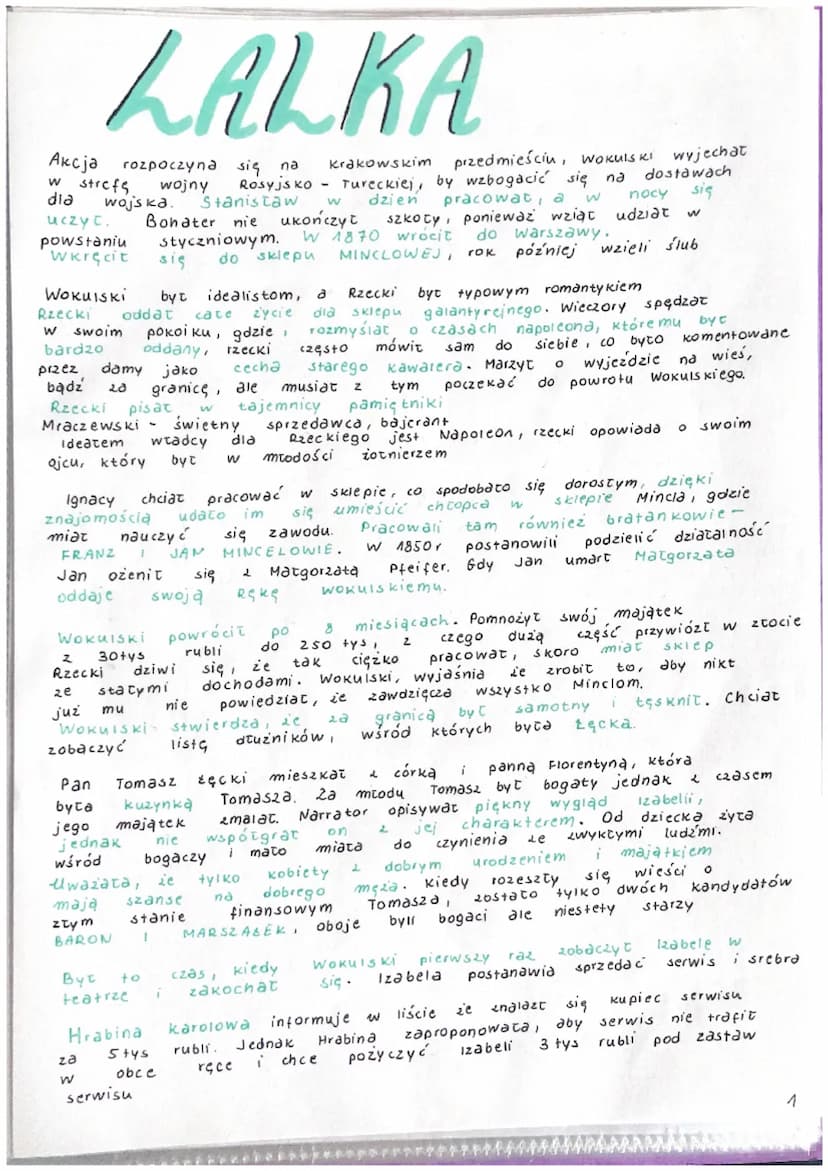 LALKA
Akcja rozpoczyna się na krakowskim przedmieściu, Wokulski wyjechał
w strefę wojny Rosyjsko - Tureckiej, by wzbogacić się na dostawach
dla wojska. Stanisław w dzień pracował, a w nocy się
uczył. Bohater nie ukończył szkoły, ponieważ wziął udział w
powstaniu styczniowym. W 1870 wrócił do Warszawy.
Wkręcił się do sklepu MINCLOWEJ, rok później wzieli ślub
Wokulski był idealistom, a Rzecki był typowym romantykiem
Rzecki oddał całe życie dla sklepu galantyryjnego. Wieczory spędzał
w swoim pokoiku, gdzie, rozmyślał o czasach napoleona, któremu był
bardzo oddany, rzecki często mówił sam do siebie, co było komentowane
przez damy jako cecha starego kawalera. Marzył o wyjeździe na wieś,
bądź za granicę, ale musiał z tym poczekać do powrotu Wokulskiego.
Rzecki pisał w tajemnicy pamiętniki
Mraczewski - świetny sprzedawca, bajerant
Ideałem władcy dla Rzeckiego jest Napoleon, rzecki opowiada o swoim
ojcu, który był w młodości żołnierzem
Ignacy chciał pracować w sklepie, co spodobało się dorosłym, dzięki
znajomością udało im się umieścić chłopca w sklepie Mincla, gdzie
miał nauczyć się zawodu. Pracowali tam również bratankowie -
FRANZ I JAN MINCELOWIE. W 1850r postanowili podzielić działalność
Jan ożenił się z Małgorzatą Pfeifer. Gdy Jan umarł Małgorzata
oddaje swoją Rękę Wokulskiemu.
Wokulski powrócił po 8 miesiącach. Pomnożył swój majątek
z 30tys rubli do 250 tys, z czego dużą część przywiózł w złocie
Rzecki dziwi się, że tak ciężko pracował, skoro miał sklep
ze stałymi dochodami. Wokulski, wyjaśnia że zrobił to, aby nikt
już mu nie powiedział, że zawdzięcza wszystko Minclom.
Wokulski stwierdza, że za granicą był samotny i tęsknił. Chciał
zobaczyć listę dłużników, wśród których była Łęcka.
Pan Tomasz Łęcki mieszkał z córką i panną Florentyną, która
była kuzynką Tomasza. Za młodu Tomasz był bogaty jednak z czasem
jego majątek zmalał. Narrator opisywał piękny wygląd Izabelii,
jednak nie współgrał on z jej charakterem. Od dziecka żyła
wśród bogaczy i mało miała do czynienia ze zwykłymi ludźmi.
Uważała, że tylko kobiety z dobrym urodzeniem i majątkiem
mają szanse na dobrego męża. Kiedy rozeszły się wieści o
złym stanie finansowym Tomasza, zostało tylko dwóch kandydatów
BARON I MARSZAŁEK, oboje byli bogaci ale niestety starzy
Był to czas, kiedy Wokulski pierwszy raz zobaczył Izabelę w
teatrze i zakochał się. Izabela postanawia sprzedać serwis i srebra
Hrabina Karolowa informuje w liście że znalazł się kupiec serwisu
za 5tys rubli. Jednak Hrabina zaproponowała, aby serwis nie trafił
w obce ręce i chce pożyczyć Izabeli 3 tys rubli pod zastaw
serwisu
1